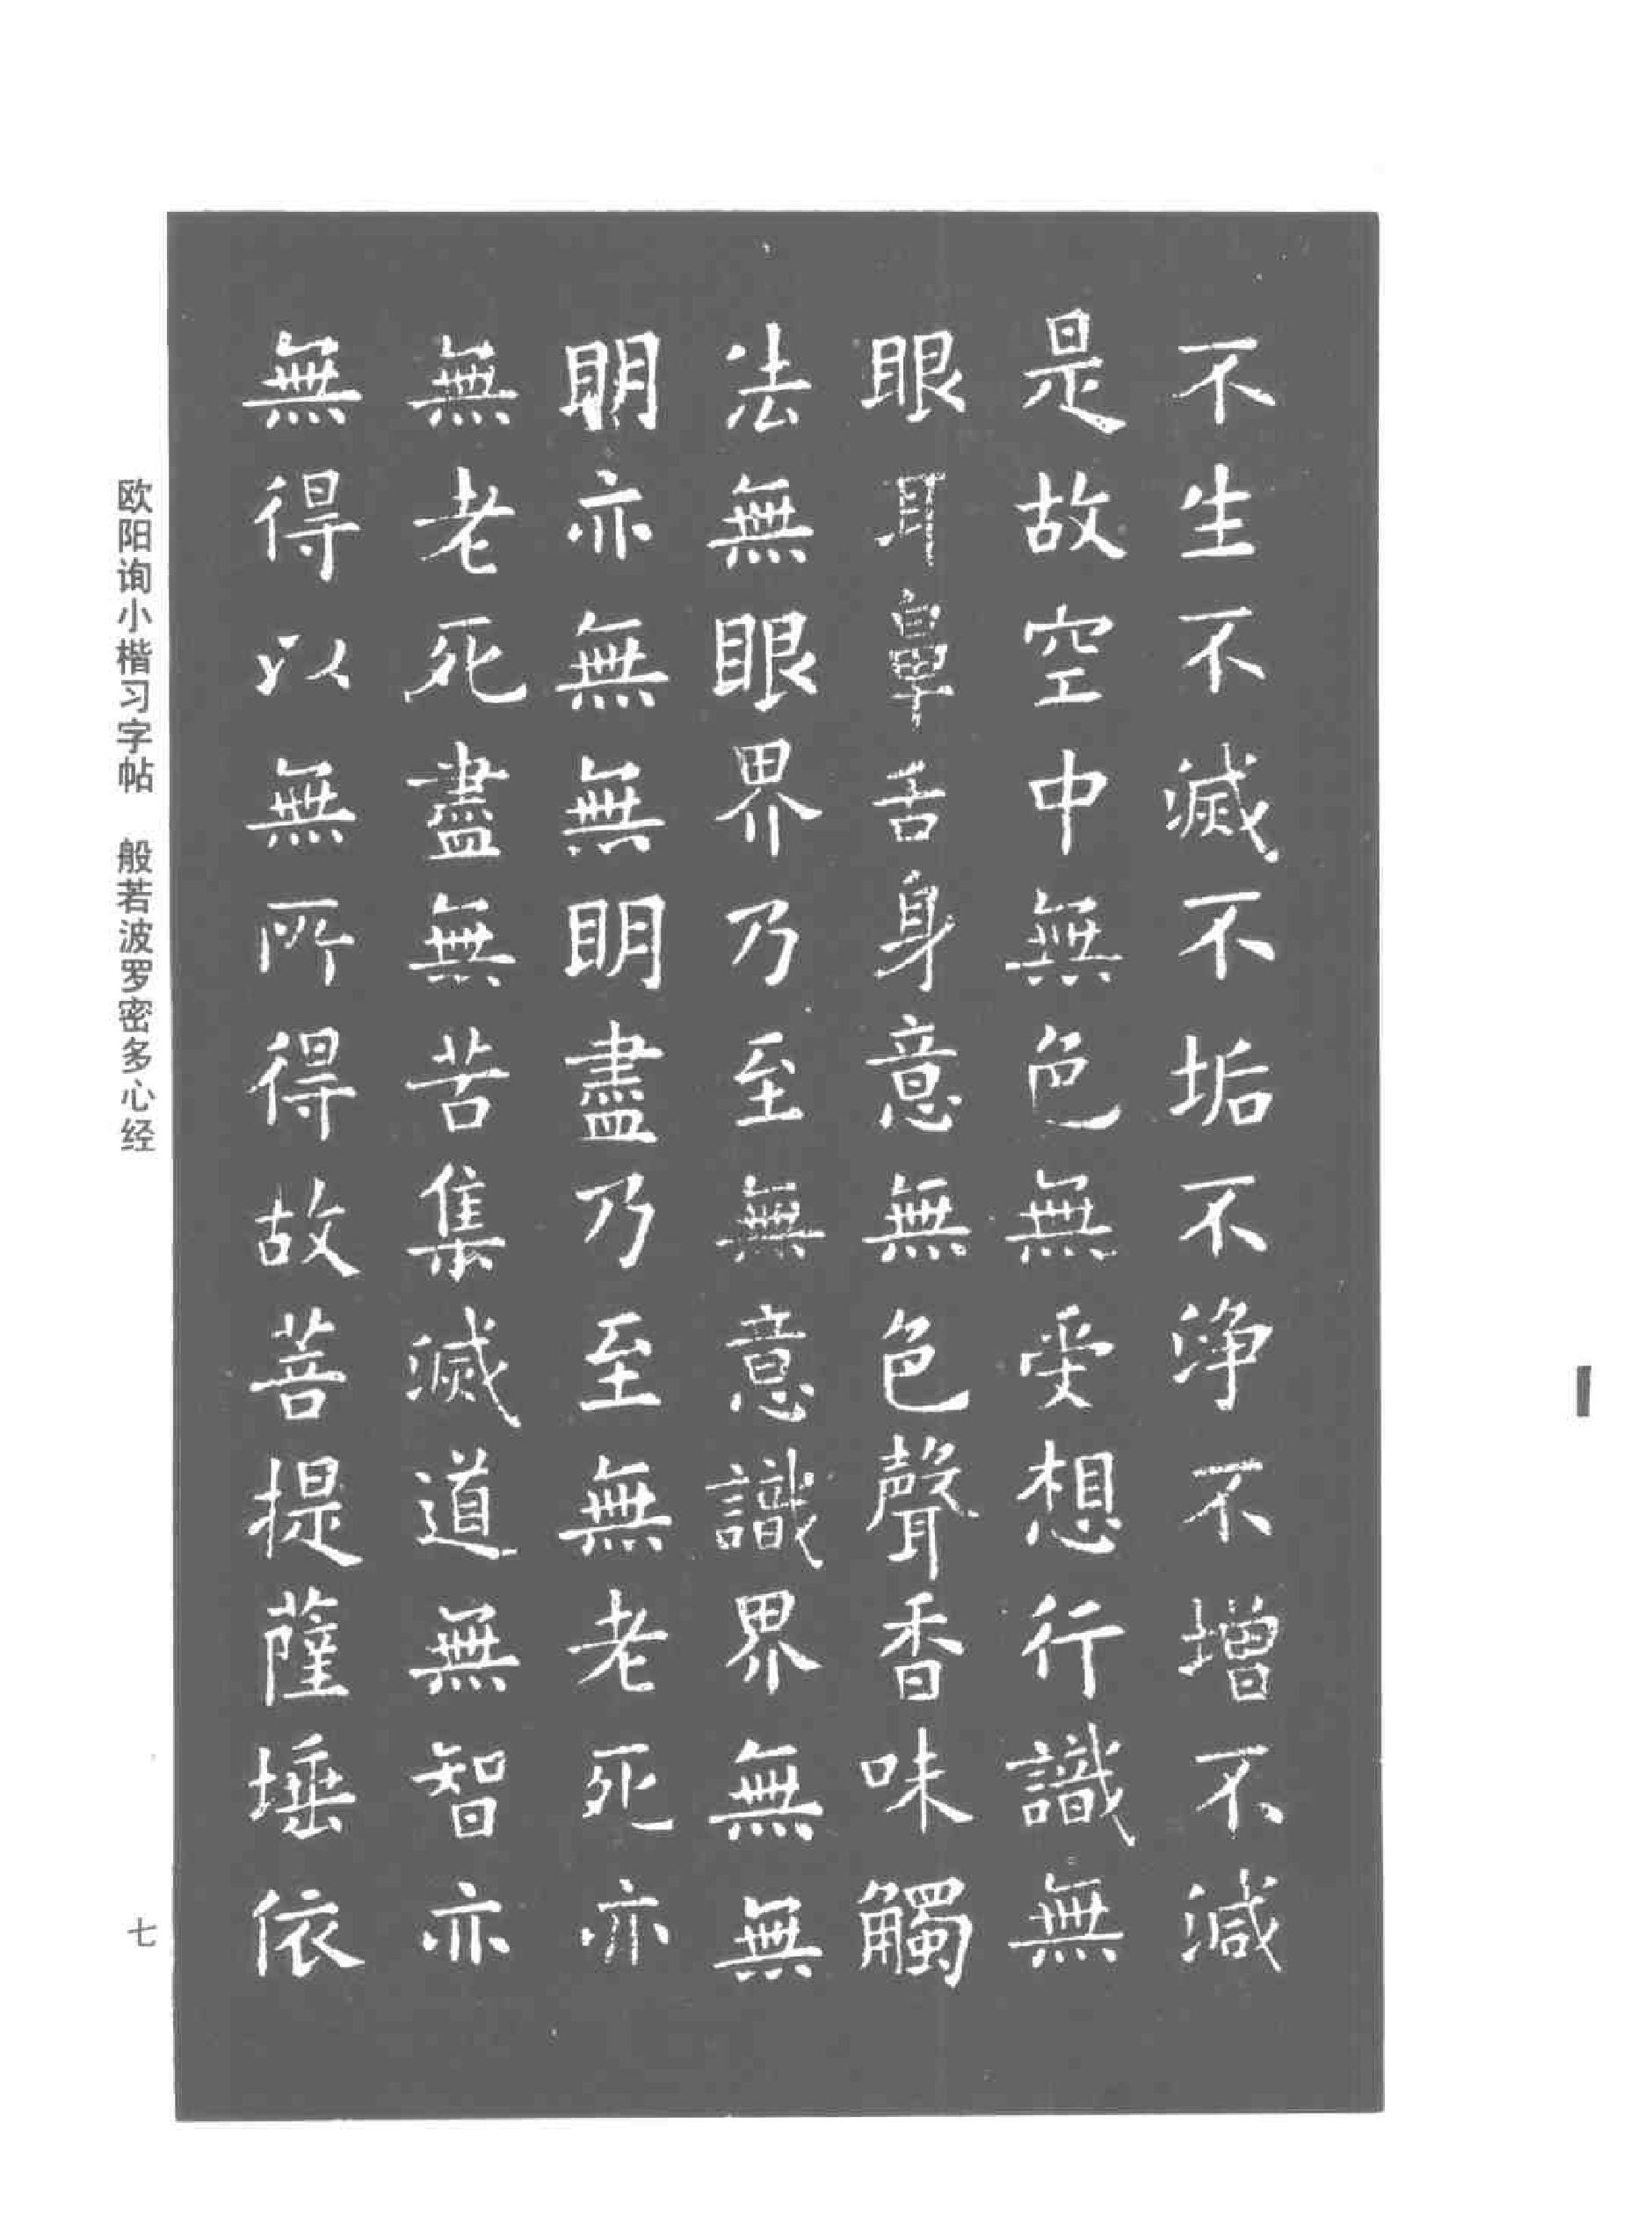 不生不滅不垢不淨不增不減
是故空中無色無受想行識無
眼耳鼻舌身意無色聲香味觸
法無眼界乃至無意識界無無
明亦無無明盡乃至無老死亦
無老死盡無苦集滅道無智亦
無得以無所得故菩提薩埵依
欧阳询小楷习字帖 般若波罗密多心经
七